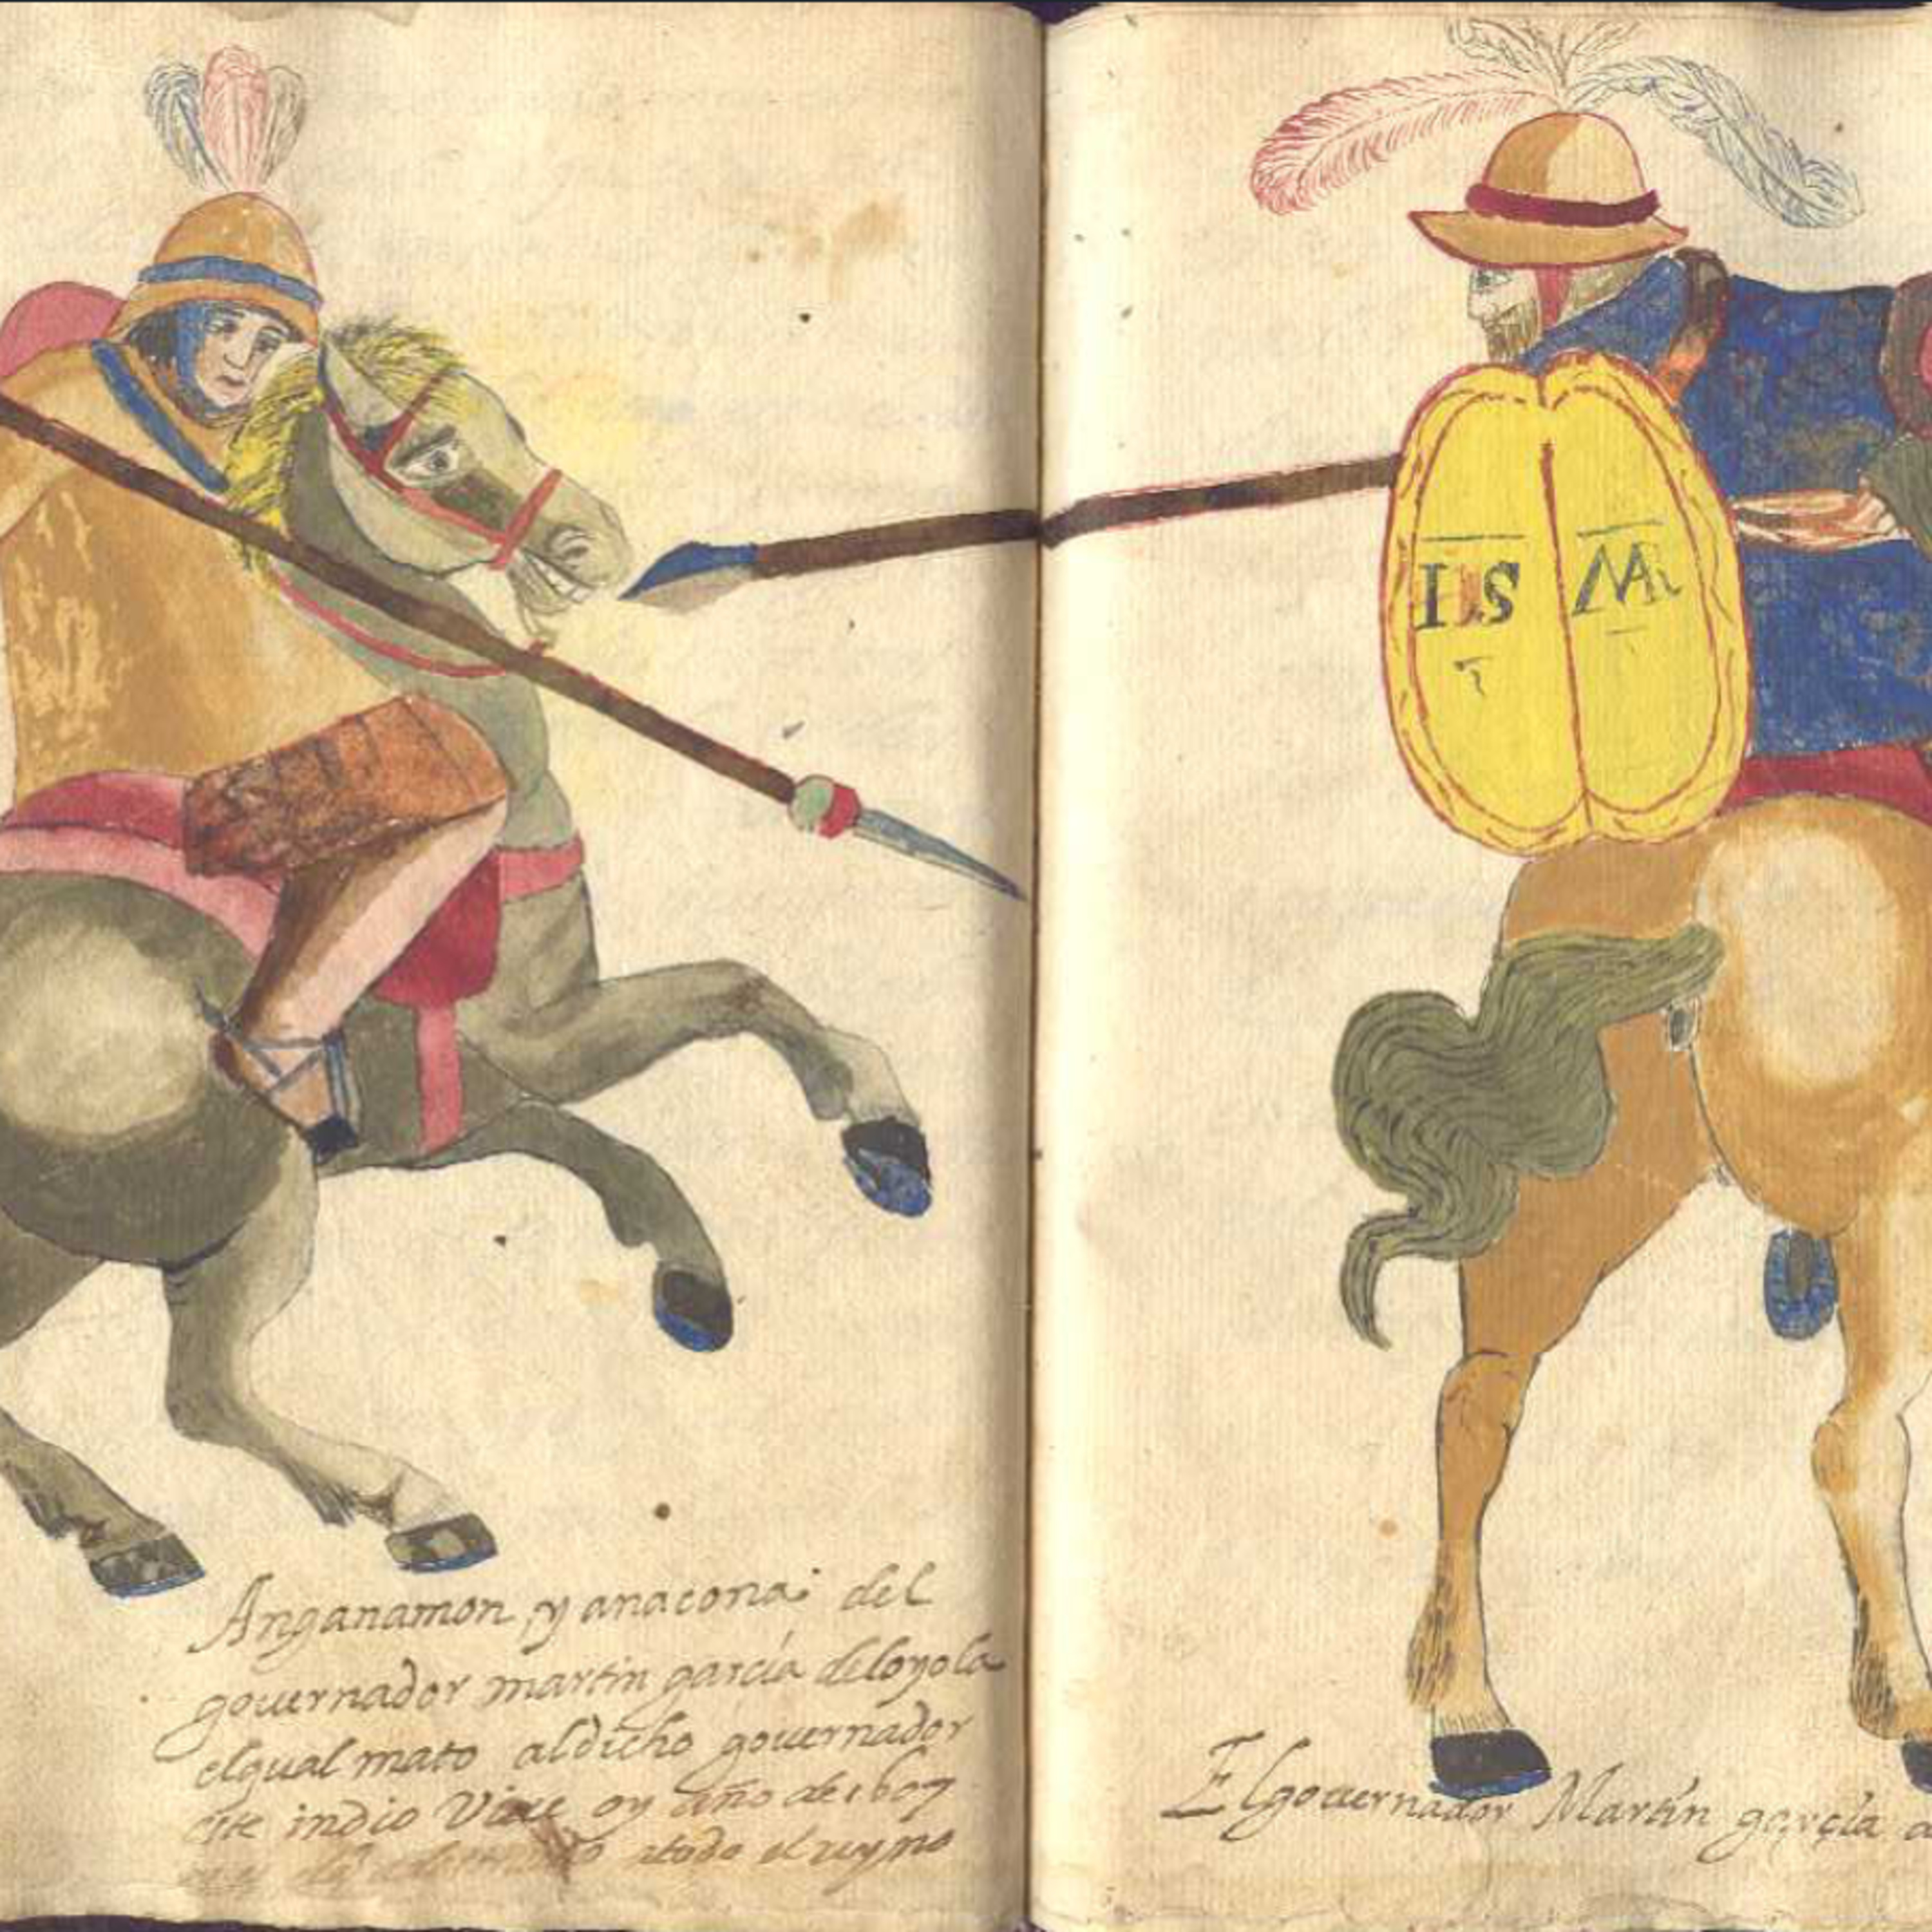 IHS MA
Anganamon yanacona del
gouernador martin garcía deloyola
elqual mato aldicho gouernador
este indio Viue oy año de 1607
atodo el reyno
Elgouernador Martin garçia